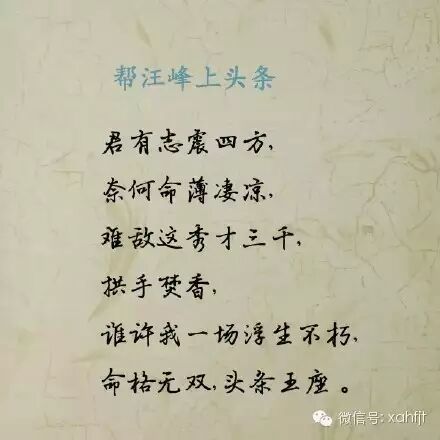 帮汪峰上头条
君有志震四方,
奈何命薄凄凉,
难敌这秀才三千,
拱手焚香,
谁许我一场浮生不朽,
命格无双,头条王座。
微信号: xahfjt